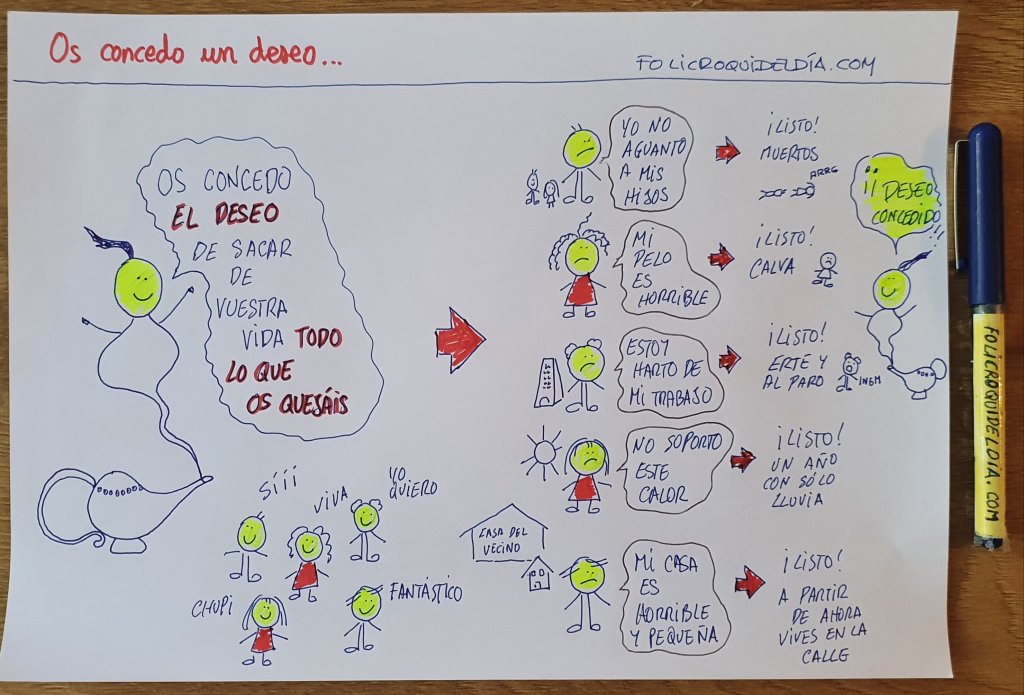 Os concedo un deseo...
FOLICROQUIDELDÍA.COM
OS CONCEDO
EL DESEO
DE SACAR
DE
VUESTRA
VIDA TODO
LO QUE
OS QUEJÁIS
SÍÍÍ
VIVA
YO
QUIERO
CHUPI
FANTÁSTICO
YO NO
AGUANTO
A MIS
HIJOS
¡LISTO!
MUERTOS
ARRG
MI
PELO
ES
HORRIBLE
¡LISTO!
CALVA
ESTOY
HARTO DE
MI TRABAJO
¡LISTO!
ERTE Y
AL PARO
INEM
NO SOPORTO
ESTE
CALOR
¡LISTO!
UN AÑO
CON SÓLO
LLUVIA
CASA DEL
VECINO
MI CASA
ES
HORRIBLE
Y PEQUEÑA
¡LISTO!
A PARTIR
DE AHORA
VIVES EN LA
CALLE
¡¡DESEO
CONCEDIDO!!
FOLICROQUIDELDIA.COM